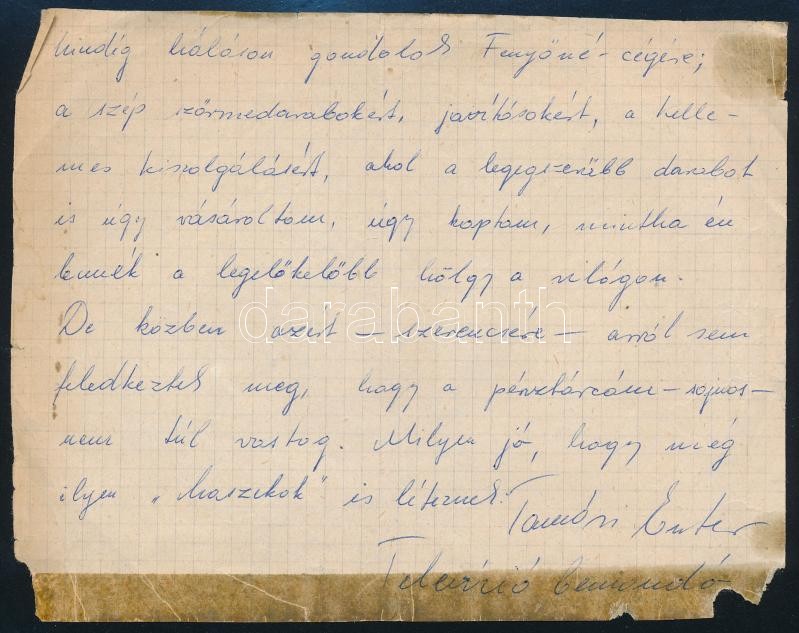 Mindig hálásan gondolok Fenyőné-cégére;
a szép szőrmedarabokért, javításokért, a kelle-
mes kiszolgálásért, ahol a legegszerűbb darabot
is úgy vásároltam, úgy kaptam, mintha én
lennék a legelőkelőbb hölgy a világon.
De közben azért – szerencsére – arról sem
feledkeztek meg, hogy a pénztárcám – sajnos –
nem túl vastag. Milyen jó, hogy még
ilyen „maszekok" is léteznek!
Tamási Eszter
Televízió bemondó
darabanth